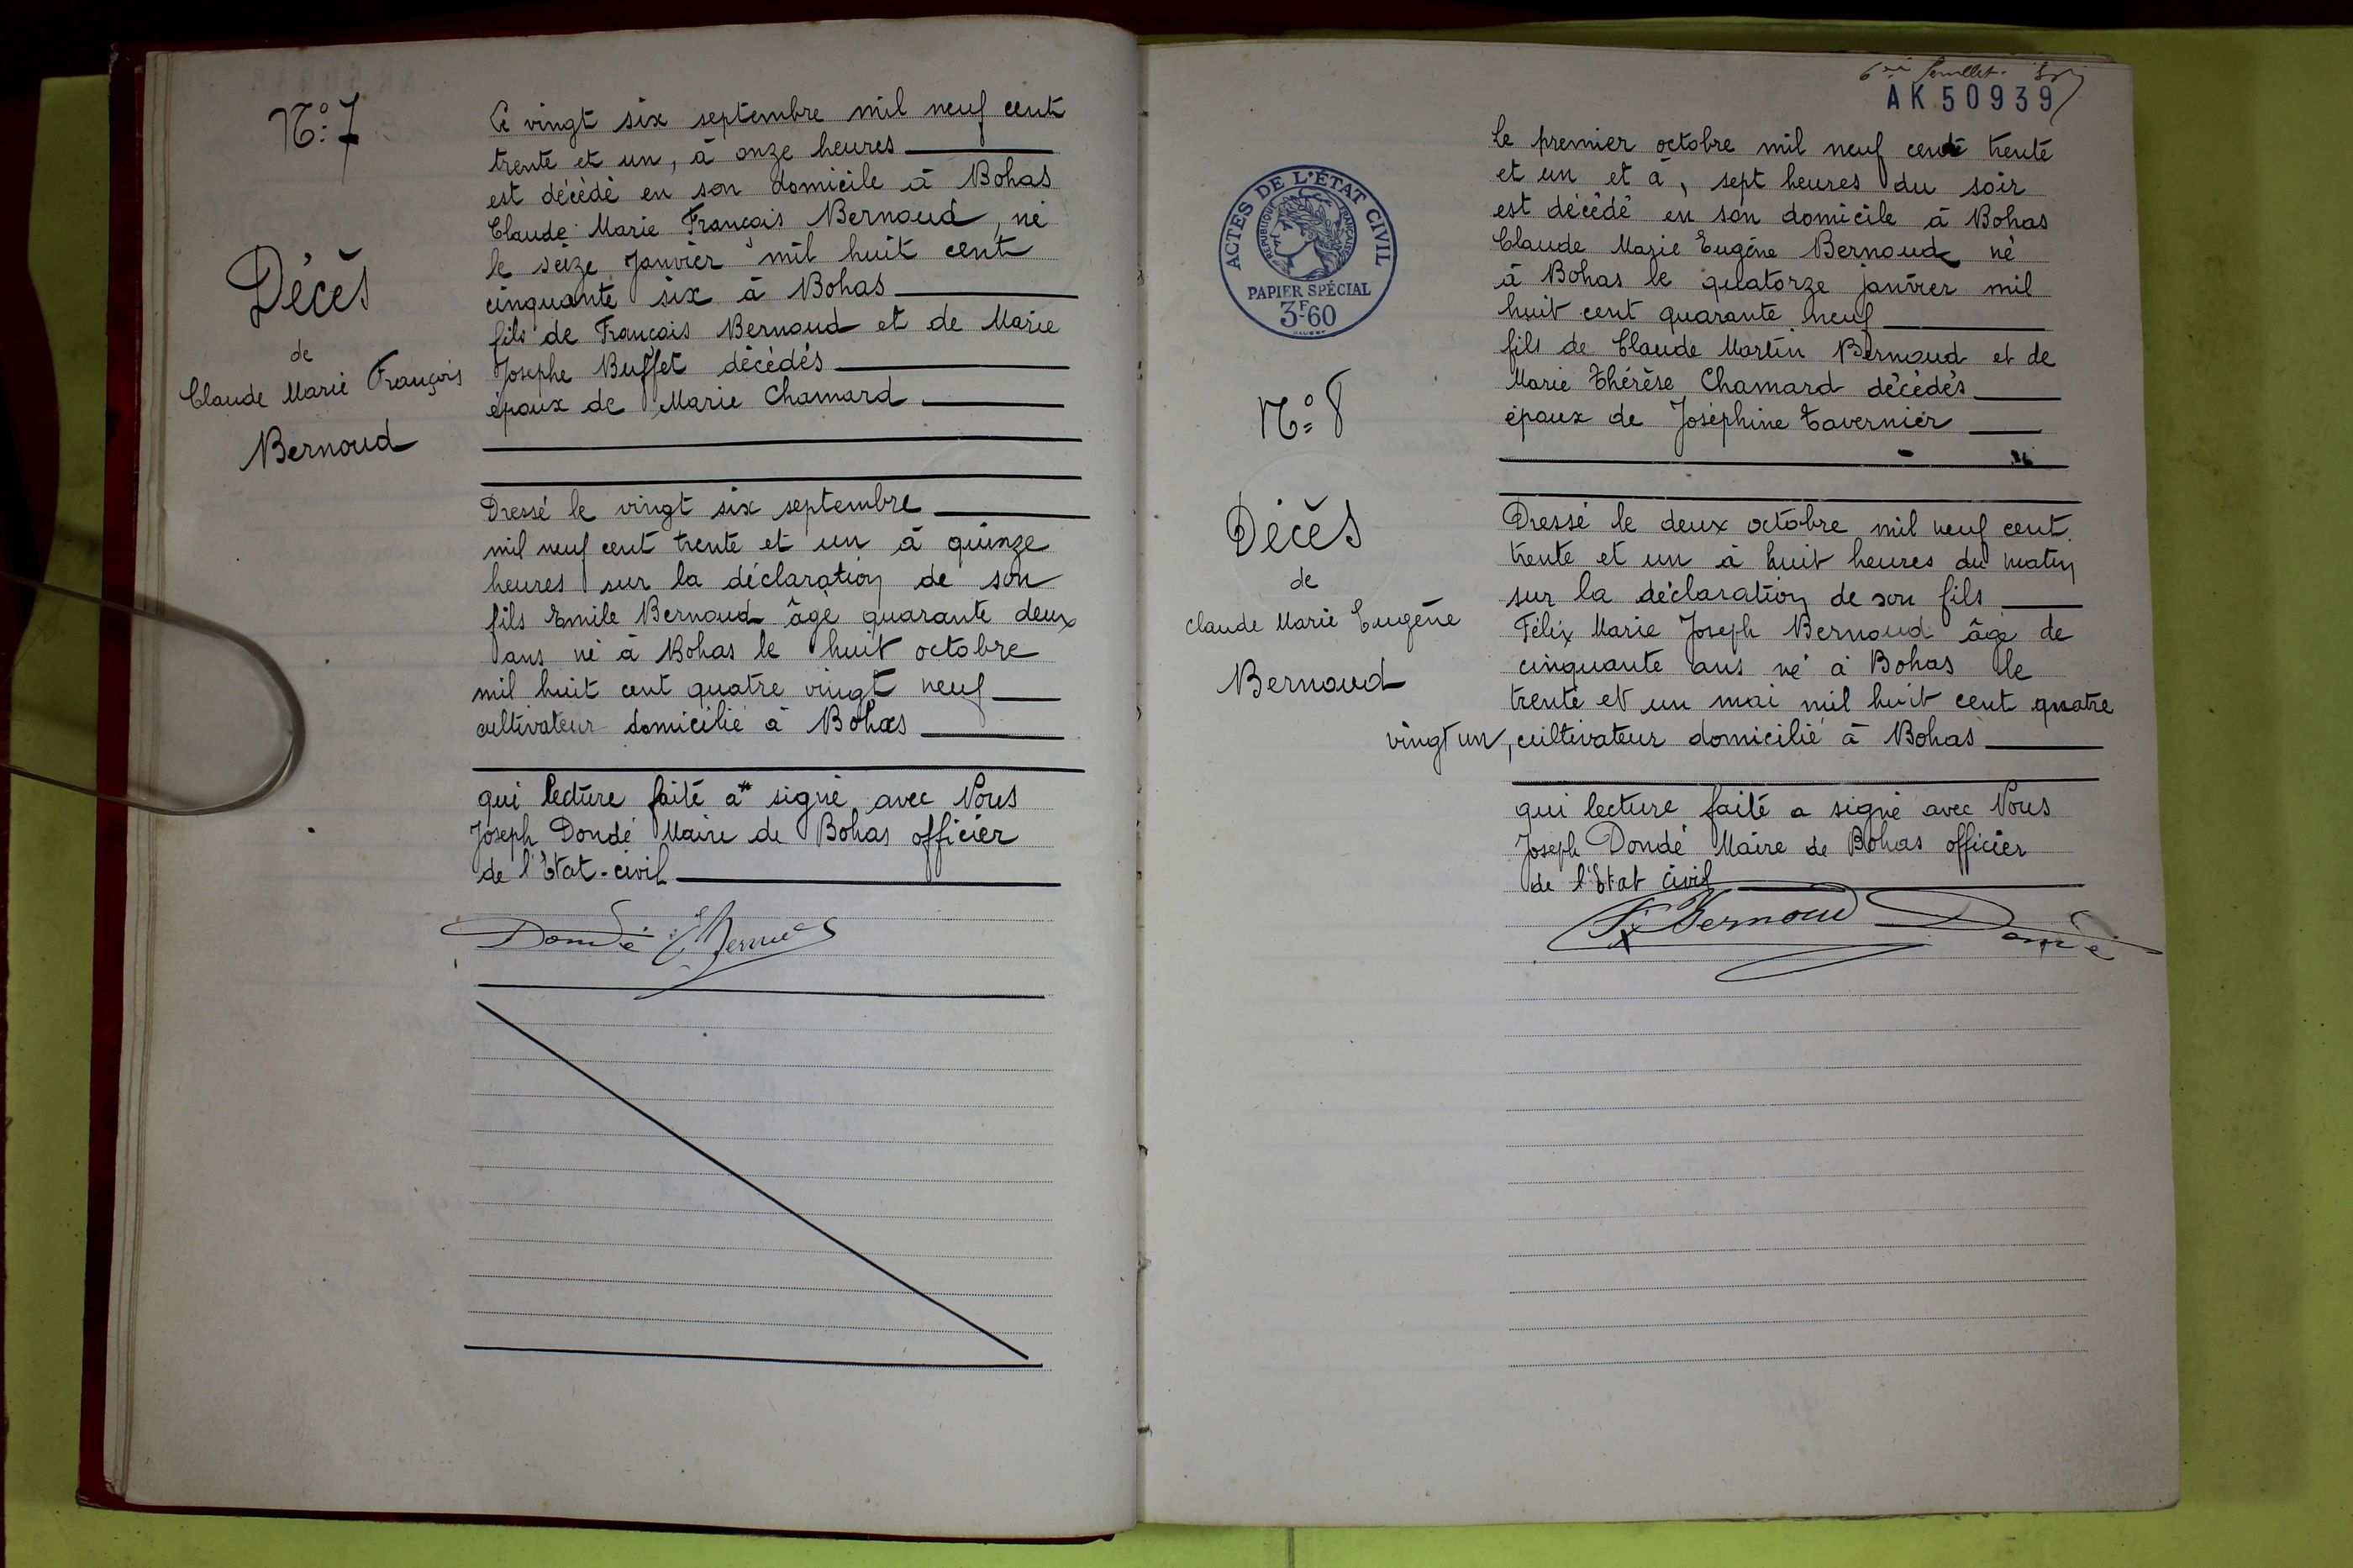 N°: 7
Décès
de
Claude Marie François
Bernoud
Le vingt six septembre mil neuf cent
trente et un, à onze heures
est décédé en son domicile à Bohas
Claude Marie François Bernoud, né
le seize Janvier mil huit cent
cinquante six à Bohas
fils de François Bernoud et de Marie
Josephe Buffet décédés
époux de Marie Chamard
Dressé le vingt six septembre
mil neuf cent trente et un à quinze
heures sur la déclaration de son
fils Emile Bernoud âgé quarante deux
ans né à Bohas le huit octobre
mil huit cent quatre vingt neuf
cultivateur domicilié à Bohas
qui lecture faite a signé avec Nous
Joseph Dondé Maire de Bohas officier
de l'Etat-civil
Dondé
6è feuillet
AK 50939
ACTES DE L'ÉTAT CIVIL
RÉPUBLIQUE FRANÇAISE
PAPIER SPÉCIAL
3F60
N°: 8
Décès
de
Claude Marie Eugène
Bernoud
Le premier octobre mil neuf cent trente
et un et à, sept heures du soir
est décédé en son domicile à Bohas
Claude Marie Eugène Bernoud né
à Bohas le quatorze janvier mil
huit cent quarante neuf
fils de Claude Martin Bernoud et de
Marie Thérèse Chamard décédés
époux de Joséphine Tavernier
Dressé le deux octobre mil neuf cent
trente et un à huit heures du matin
sur la déclaration de son fils
Félix Marie Joseph Bernoud âgé de
cinquante ans né à Bohas le
trente et un mai mil huit cent quatre
vingt un, cultivateur domicilié à Bohas
qui lecture faite a signé avec Nous
Joseph Dondé Maire de Bohas officier
de l'Etat civil
Bernoud Dondé